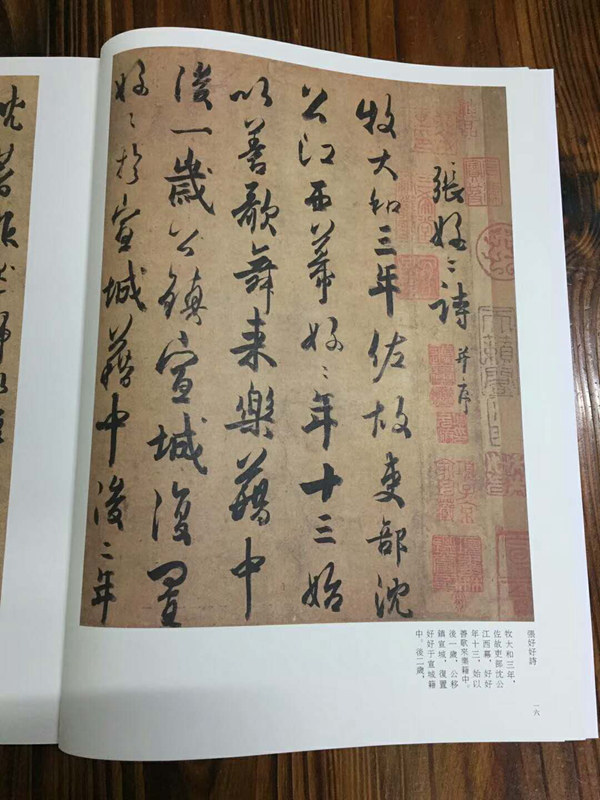 張好〻詩 并序
牧大和三年佐故吏部沈
公江西幕好〻年十三始
以善歌舞来樂籍中
後一歲公鎮宣城復置
好〻於宣城籍中後二年
張好好詩
牧大和三年，
佐故吏部沈公
江西幕，好好
年十三，始以
善歌來樂籍中。
後一歲，公移
鎮宣城，復置
好好于宣城籍
中。後二歲，
一六